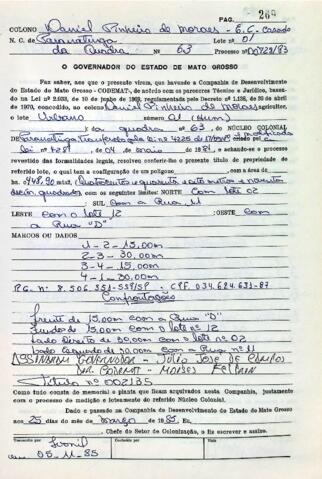 PAG. 269
COLONO Daniel Pinheiro de Moraes - E.C. Casado
N. C. de Paranatinga Lote nº 01
da Quadra nº 63 Processo nº
O GOVERNADOR DO ESTADO DE MATO GROSSO
Faz saber, aos que o presente virem, que havendo a Companhia de Desenvolvimento
do Estado de Mato Grosso - CODEMAT, de acordo com os pareceres Técnico e Jurídico, basea-
do na Lei nº 2.033, de 10 de junho de 1963, regulamentada pelo Decreto nº 1.138, de 20 de abril
de 1970, concedido, ao colono Daniel Pinheiro de Moraes
lote Urbano nº 01 (Hum)
da quadra nº 63, DO NÚCLEO COLONIAL
Paranatinga
lei nº 4281 de maio de 1981, e achando-se o processo
revestido das formalidades legais, resolveu conferir-lhe o presente título de propriedade de
referido lote, o qual tem a configuração de um polígono com a área de
448,90 m2 (quatrocentos e quarenta e oito metros e noventa
quadrados com os seguintes limites: NORTE Com lote 02
SUL com a Rua 11
LESTE com o lote 12 :OESTE com
a Rua "D"
MARCOS OU DADOS
1 - 2 - 15,00m
2 - 3 - 30,00m
3 - 4 - 15,00m
4 - 1 - 30,00m
R.G. nº 8.506.351-SSP/SP - CPF. 034.624.631-87
Confrontações
Frente de 15,00m com a Rua "D"
Fundos de 15,00m com o lote nº 12
Lado Direito de 30,00m com o lote nº 02
Lado Esquerdo de 30,00m com a Rua nº 11
ASSINARAM GOVERNADOR - JULIO JOSÉ DE CAMPOS
DIR. CODEMAT - MOISES FELTRIN
Título nº 002135
Como tudo consta do memorial e planta que ficam arquivados nesta Companhia, juntamente
com o processo de medição e loteamento do referido Núcleo Colonial.
Dado e passado na Companhia de Desenvolvimento do Estado de Mato Grosso
aos 25 dias do mês de março de 1985. Eu,
, Chefe do Setor de Colonização, o fiz escrever e assino.
Transcrito por Ivonil
em 05-11-85